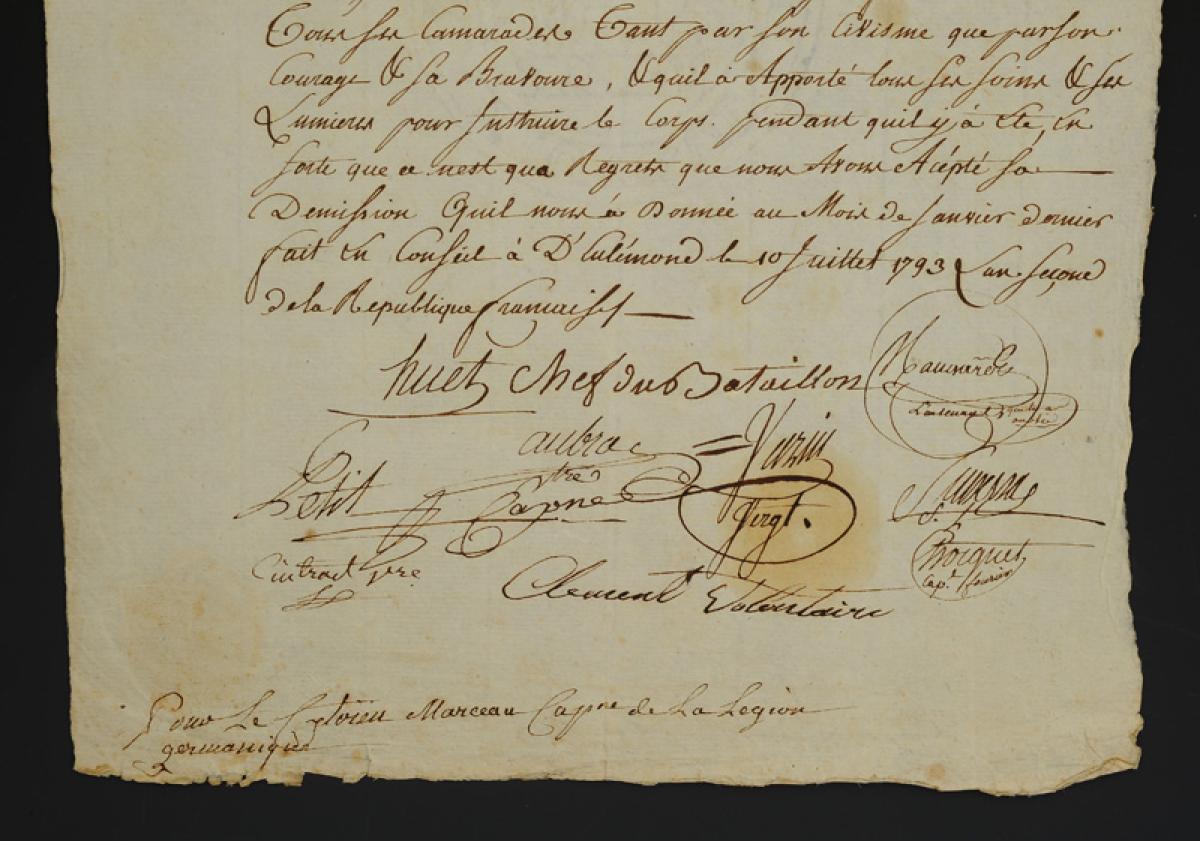 Tous ses Camarades Tant par son Civisme que par son
Courage & sa Bravoure, & quil à Apporté tous ses soins & ses
Lumieres pour Instruire le Corps. pendant quil y à Eté, En
sorte que ce nest qua Regrets que nous Avons Acépté sa
Demission Quil nous à Donnée au Mois de Janvier dernier
fait En Conseil à le 10 Juillet 1793 Lan Second
de la Republique francaise
huet Chef du Bataillon
Lieutenant
aubra
Petit
Capne
Sergt.
Cap.t
Clement Volontaire
Pour Le Citoien Marceau Capne de La Legion
germanique